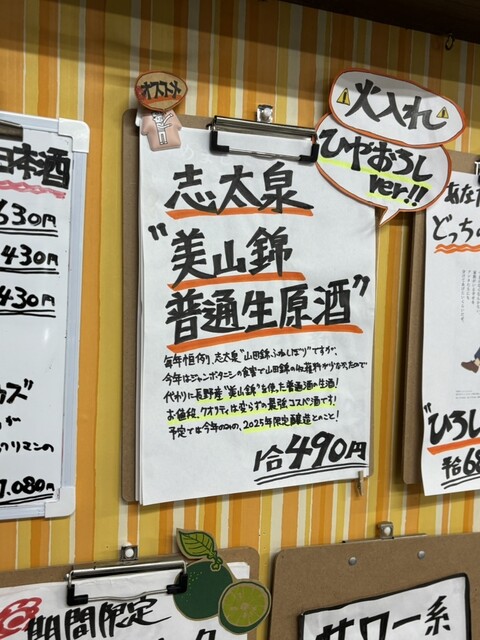 オススメ
火入れ
ひやおろし
ver!!
志太泉
"美山錦
普通生原酒"
毎年恒例、志太泉"山田錦ふねしぼり"ですが、
今年はジャンボタニシの食害で山田錦の収穫量が少なかったので
代わりに長野産"美山錦"を使った普通酒の生酒!
お値段、クオリティは変らずの最強コスパ酒です!
予定では今年のみの、2025年限定醸造とのこと!
1合490円
日本酒
630円
430円
430円
ズ"
が
クリマンの
1,080円
あなた
どっちの
"ひろし
半合68
期間限定
サワー系